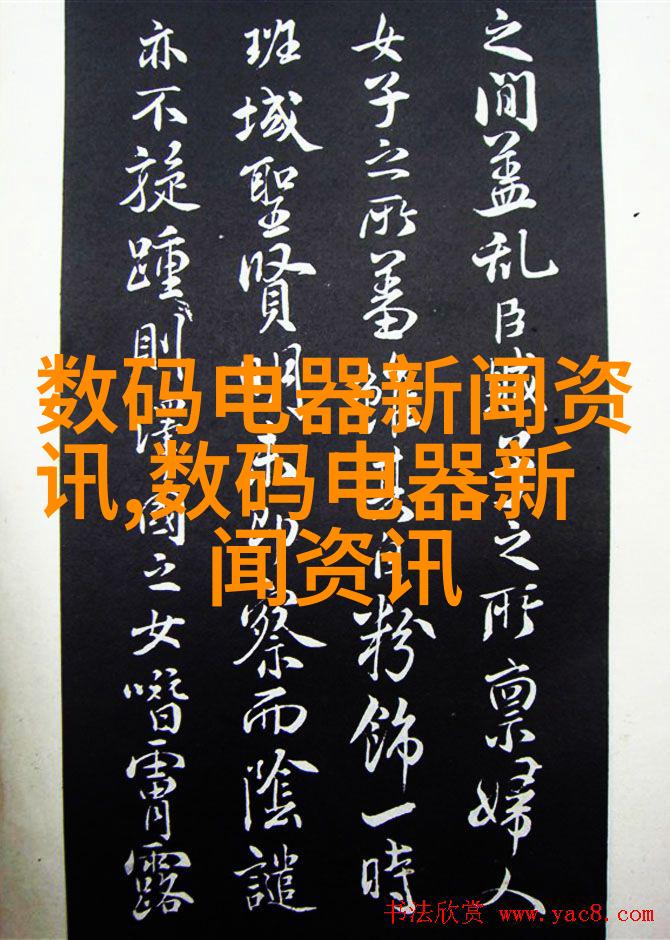 之間盖乱臣之所禀婦人
女子之所蓄自粉飾一時
班域聖賢察而陰譴
亦不旋踵則國之女噆霄露
数码电器新闻资
讯,数码电器新
闻资讯
书法欣赏 www.yac8.com